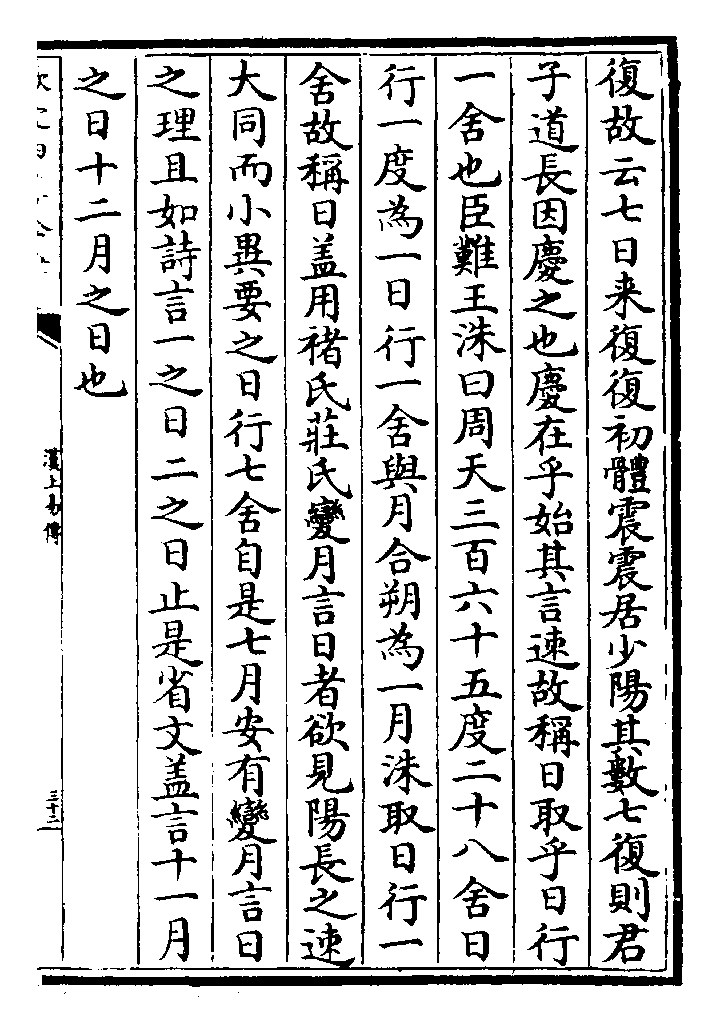 復故云七日来復復初體震震居少陽其數七復則君
子道長因慶之也慶在乎始其言速故稱日取乎日行
一舍也臣難王洙曰周天三百六十五度二十八舍日
行一度為一日行一舍與月合朔為一月洙取日行一
舍故稱日盖用褚氏莊氏變月言日者欲見陽長之速
大同而小異要之日行七舍自是七月安有變月言日
之理且如詩言一之日二之日止是省文盖言十一月
之日十二月之日也
漢上易傳
三十二